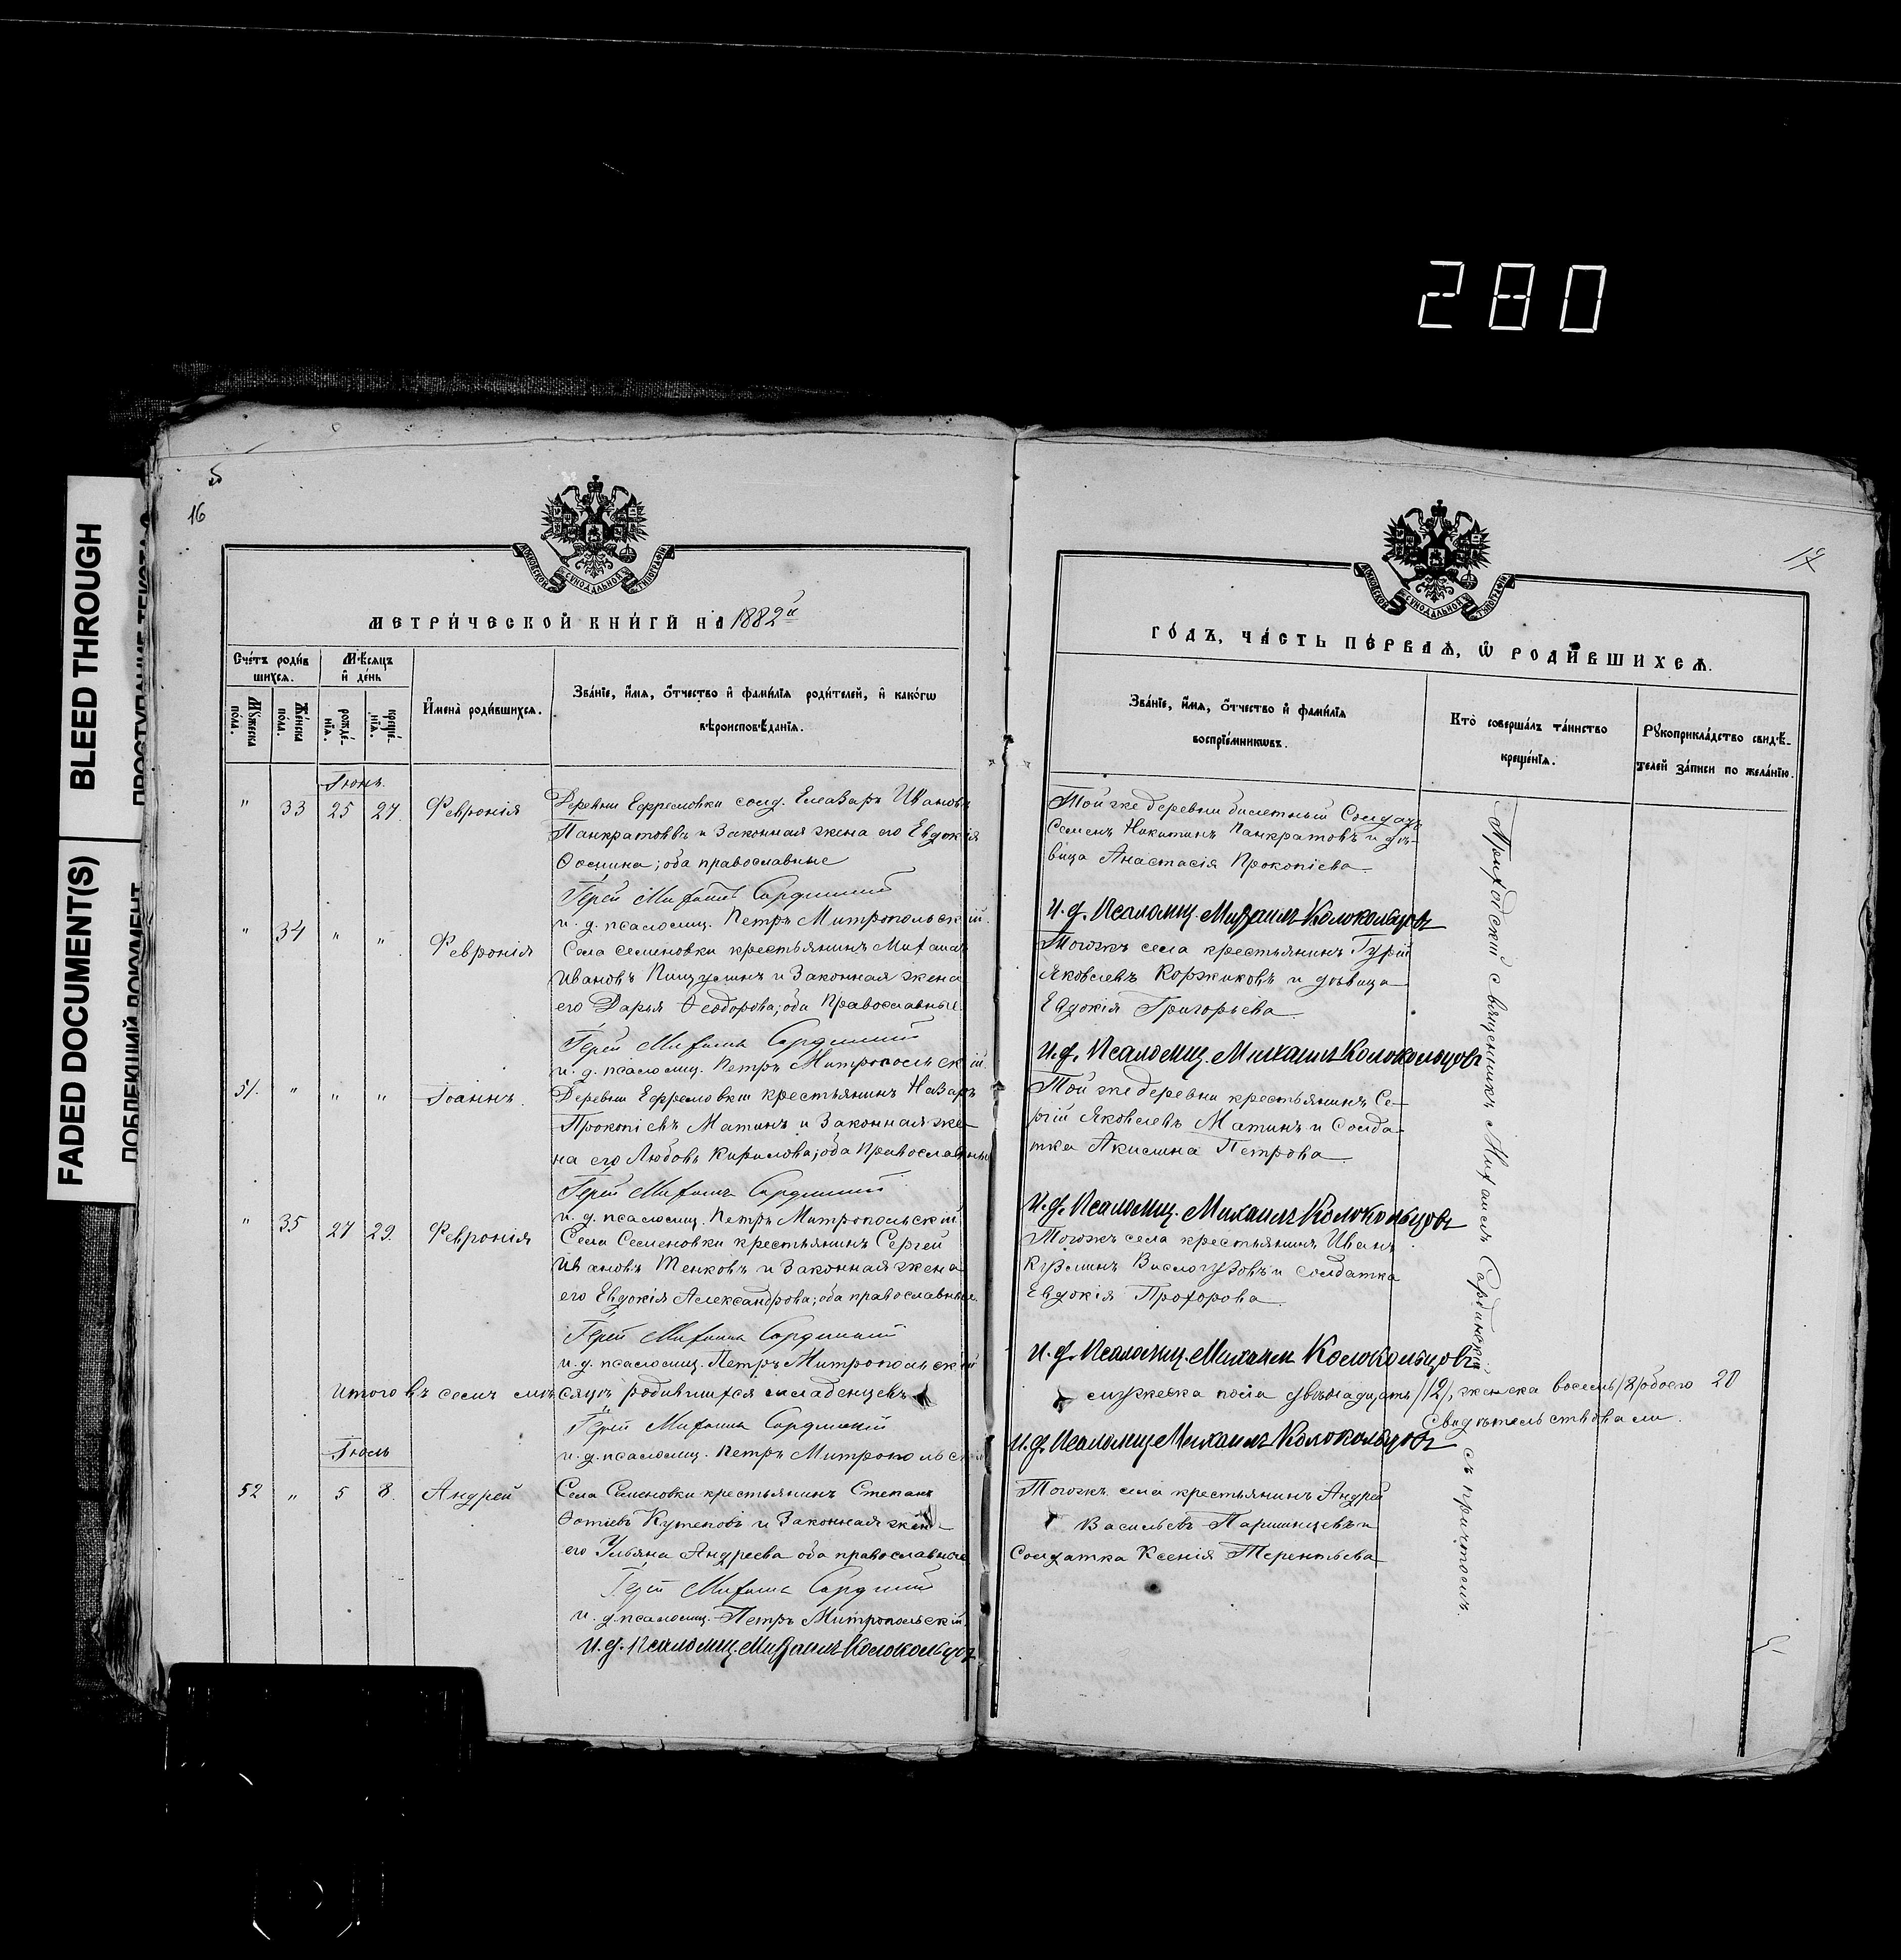 280
FADED DOCUMENT(S)
BLEED THROUGH
ПОБЛЕКШИЙ ДОКУМЕНТ
5
16
МОСКОВСКОЙ СѴНОДАЛЬНОЙ ТИПОГРАФІИ
МЕТРИ́ЧЕСКОЙ КНИ́ГИ НА 1882й
Сче́тъ роди́в
шихся.
Мꙋ́жеска
по́ла.
Же́нска
по́ла.
Мѣ́сяцъ
и҆ де́нь
рожде́-
нїѧ.
креще́-
нїѧ.
И҆мена̀ роди́вшихсѧ.
Зва́нїе, и҆́мѧ, ѻ҆́тчество и҆ фами́лїѧ роди́телей, и҆ како́гѡ
вѣроисповѣ́данїѧ.
Іюнь.
" 33 25 27. Февронія
Деревни Ефремовки солд. Елеазаръ Ивановъ
Панкратовъ и законная жена его Евдокія
Ѳомина; оба православные
Іерей Михаилъ Сардинскій
и. д. псаломщ. Петръ Митропольскій.
" 34 " " Февронія
Села Семеновки крестьянинъ Михаилъ
Ивановъ и законная жена
его Дарья Ѳеодорова; оба православные.
Іерей Михаилъ Сардинскій
и. д. псаломщ. Петръ Митропольскій.
51. " " " Іоаннъ.
Деревни Ефремовки крестьянинъ Назаръ
Прокопіевъ Матинъ и законная же-
на его Любовь Кирилова; оба православные
Іерей Михаилъ Сардинскій
и. д. псаломщ. Петръ Митропольскій
" 35 27 29. Февронія
Села Семеновки крестьянинъ Сергей
Ивановъ Тенковъ и законная жена
его Евдокія Александрова; оба православные.
Іерей Михаилъ Сардинскій
и. д. псаломщ. Петръ Митропольскій
Итого въ семъ мѣсяцѣ родившихся младенцевъ
Іерей Михаилъ Сардинскій
и. д. псаломщ. Петръ Митропольскій
Іюль
52 " 5 8. Андрей
Села Семеновки крестьянинъ Степанъ
Фотіевъ Кутеповъ и законная жена
его Ульяна Андреева оба православные
Іерей Михаилъ Сардинскій
и. д. псаломщ. Петръ Митропольскій
И. д. Псаломщ. Михаилъ Колокольцовъ
17
МОСКОВСКОЙ СѴНОДАЛЬНОЙ ТИПОГРАФІИ
ГО́ДЪ, ЧА́СТЬ ПЕ́РВАѦ, Ѡ҆ РОДИ́ВШИХСѦ.
Зва́нїе, и҆́мѧ, ѻ҆́тчество и҆ фами́лїѧ
воспрїе́мникѡвъ.
Кто̀ соверша́лъ та́инство
креще́нїѧ.
Рꙋкоприкла́дство свидѣ́-
телей за́писи по жела́нїю.
Той же деревни билетный Солдатъ
Семенъ Никитинъ Панкратовъ и дѣ-
вица Анастасія Прокопіева
И. д. Псаломщ. Михаилъ Колокольцовъ
Тогожъ села крестьянинъ Гурій
Яковлевъ Коржиковъ и дѣвица
Евдокія Григорьева
И. д. Псаломщ. Михаилъ Колокольцовъ
Той же деревни крестьянинъ Се-
ргій Яковлевъ Матинъ и Солда-
тка Акилина Петрова
И. д. Псаломщ. Михаилъ Колокольцовъ
Тогожъ села крестьянинъ Иванъ
Кузминъ Вислогузовъ и солдатка
Евдокія Прохорова
И. д. Псаломщ. Михаилъ Колокольцовъ
мужеска пола двѣнадцать /12/, женска восемь /8/ обоего 20
Свидѣтельствовали.
И. д. Псаломщ Михаилъ Колокольцовъ
Тогожъ села крестьянинъ Андрей
Васильевъ и
Солдатка Ксенія Терентьева
Приходскій священникъ Михаилъ Сардинскій съ причтомъ.